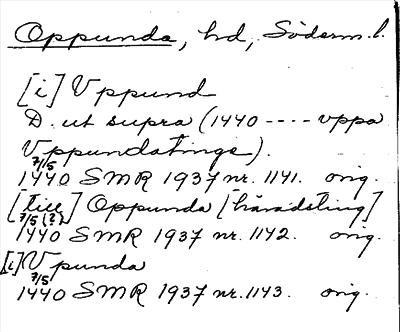 Oppunda, hd, Söderm. l.
[i] Vppund
D. ut supra (1440 ---- vppa
Vppundatinge).
7/5
1440 SMR 1937 nr. 1141. orig.
[till] Oppunda [häradsting]
7/5 (?)
1440 SMR 1937 nr. 1142. orig.
[i] Vpunda
7/5
1440 SMR 1937 nr. 1143. orig.